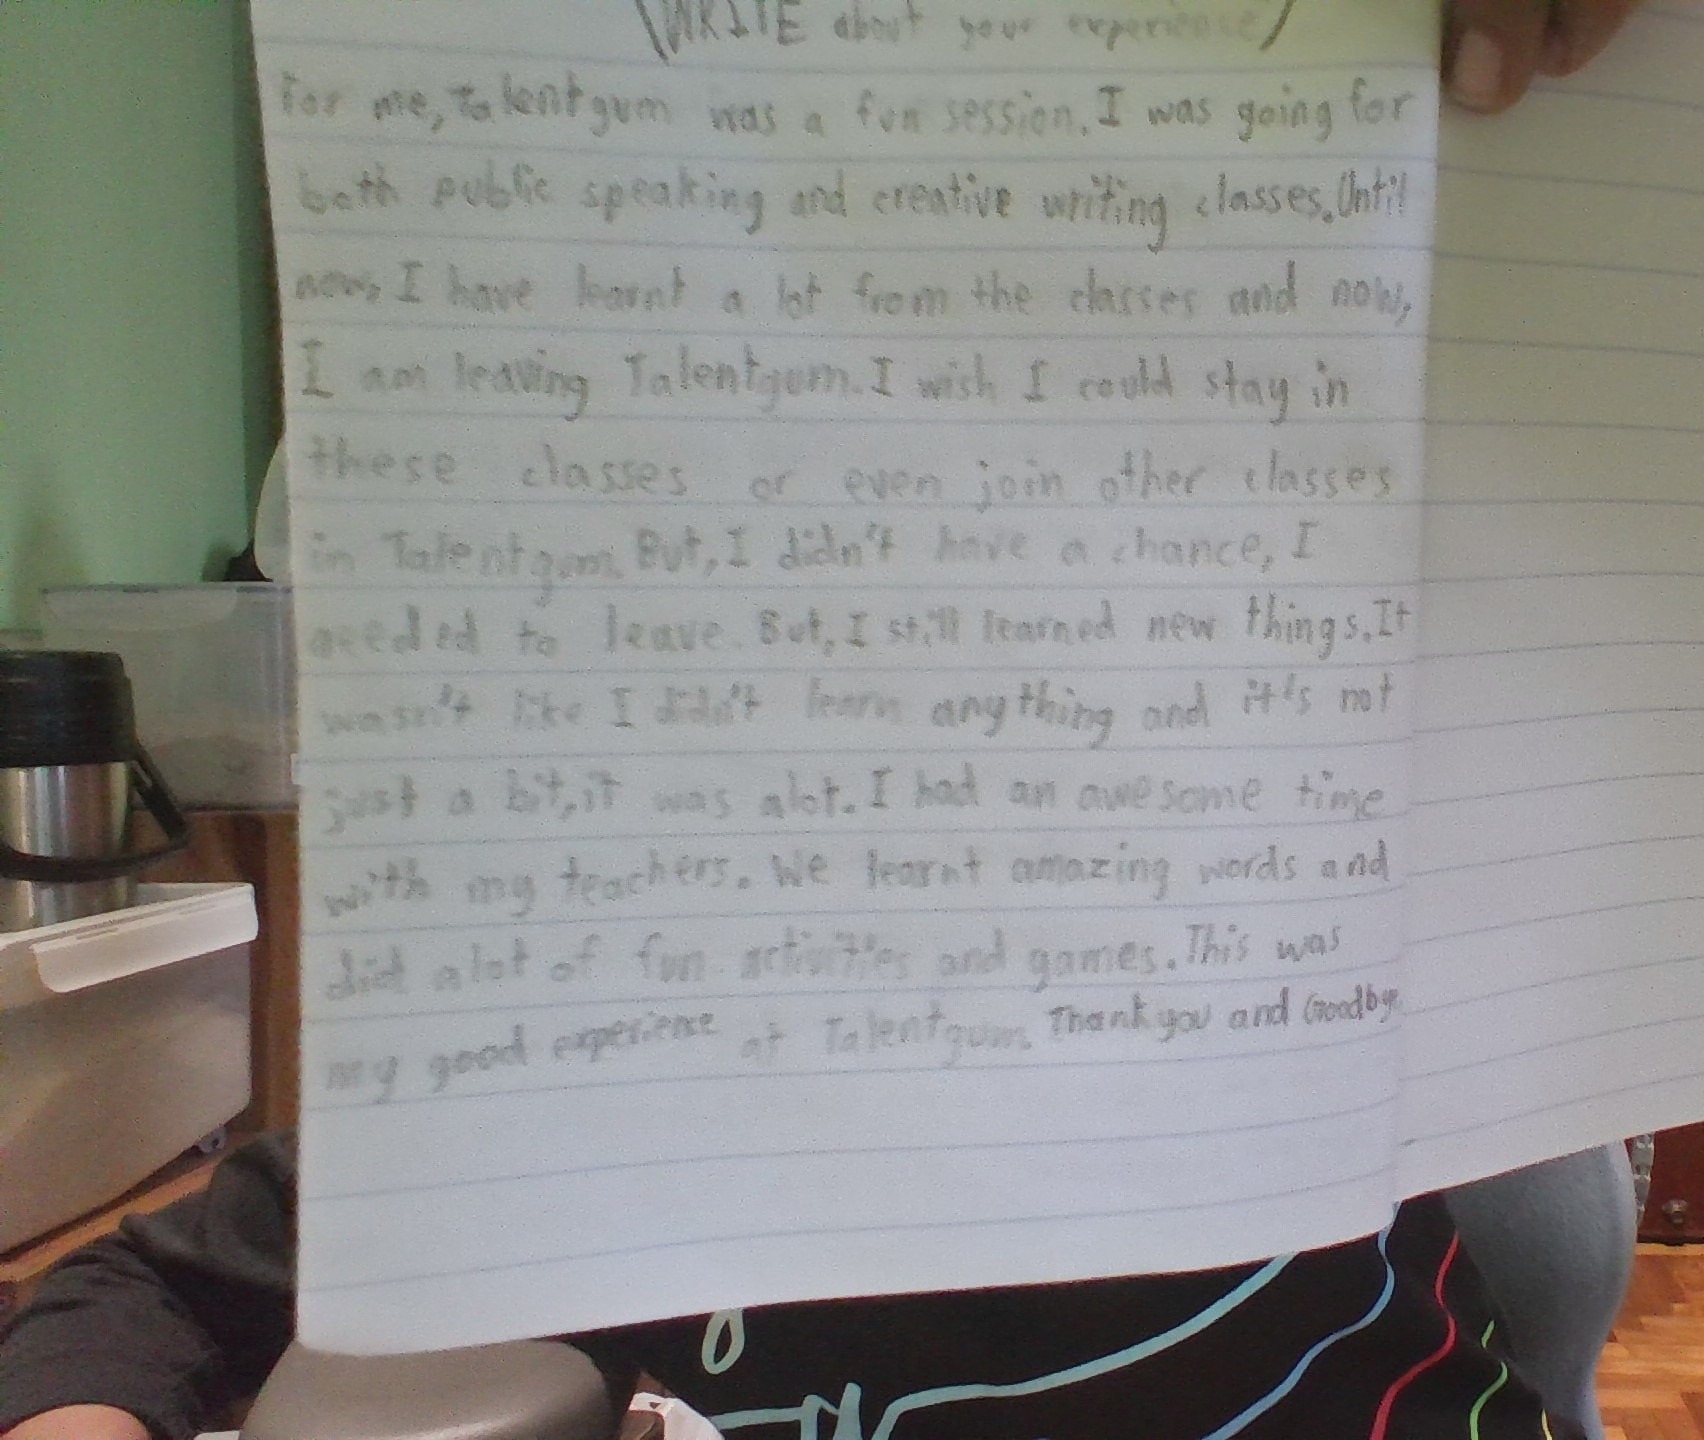 (WRITE about your experience)
For me, Talentgum was a fun session. I was going for
both public speaking and creative writing classes. Until
now, I have learnt a lot from the classes and now,
I am leaving Talentgum. I wish I could stay in
these classes or even join other classes
in Talentgum. But, I didn't have a chance, I
needed to leave. But, I still learned new things. It
wasn't like I didn't learn anything and it's not
just a bit, it was alot. I had an awesome time
with my teachers. We learnt amazing words and
did alot of fun activities and games. This was
my good experience at Talentgum. Thank you and Goodbye.